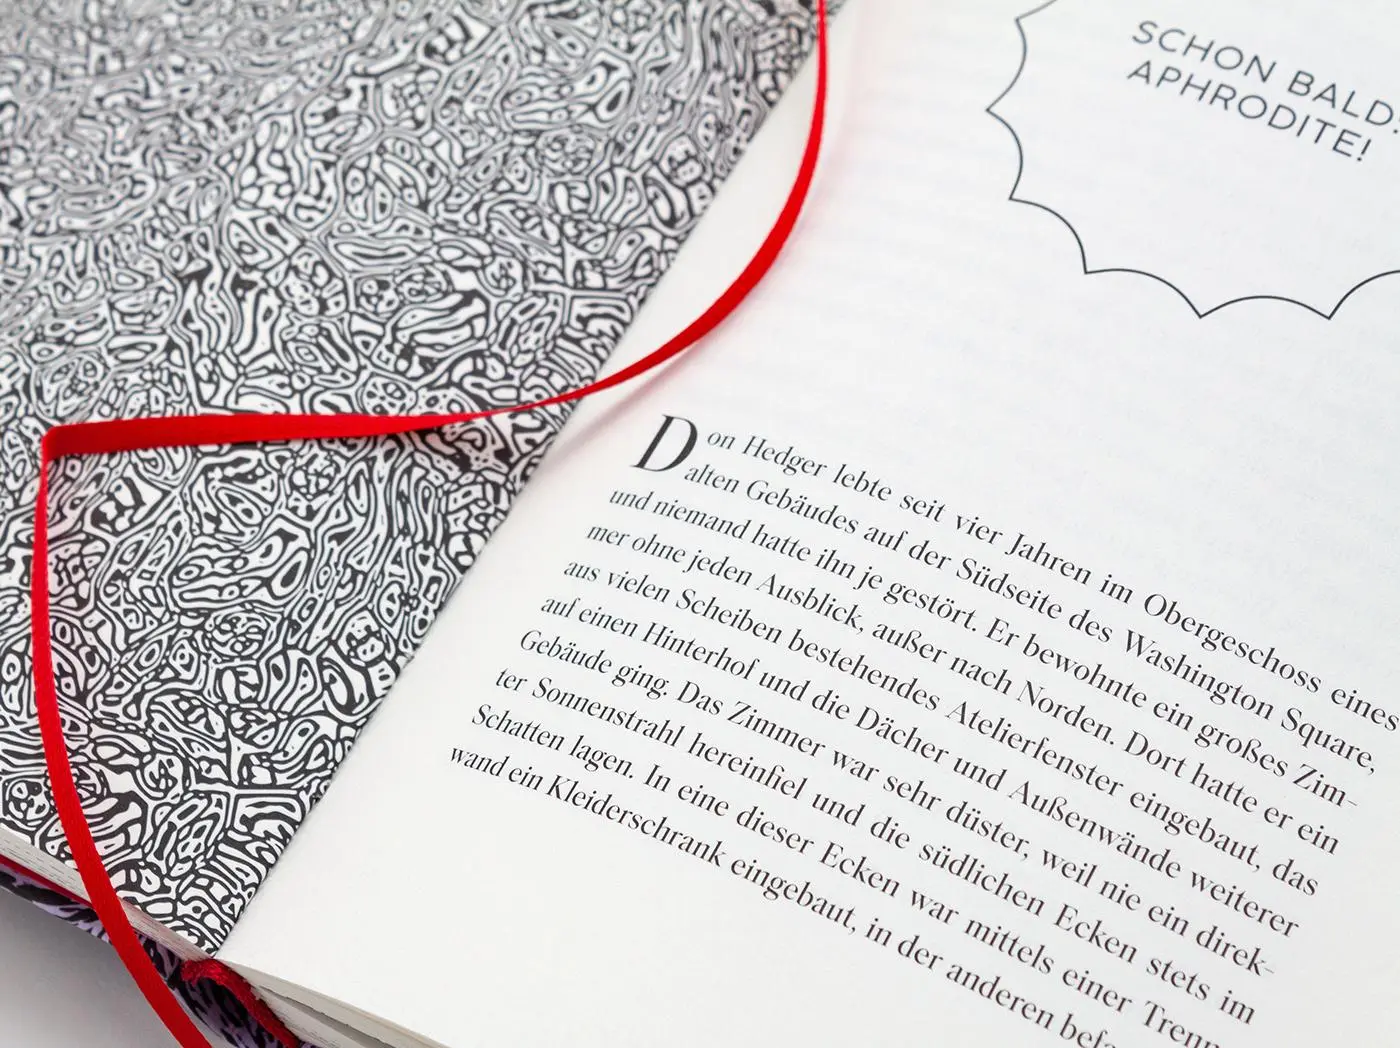 SCHON BALD,
APHRODITE!
Don Hedger lebte seit vier Jahren im Obergeschoss eines
alten Gebäudes auf der Südseite des Washington Square,
und niemand hatte ihn je gestört. Er bewohnte ein großes Zim-
mer ohne jeden Ausblick, außer nach Norden. Dort hatte er ein
aus vielen Scheiben bestehendes Atelierfenster eingebaut, das
auf einen Hinterhof und die Dächer und Außenwände weiterer
Gebäude ging. Das Zimmer war sehr düster, weil nie ein direk-
ter Sonnenstrahl hereinfiel und die südlichen Ecken stets im
Schatten lagen. In eine dieser Ecken war mittels einer Trenn
wand ein Kleiderschrank eingebaut, in der anderen befa